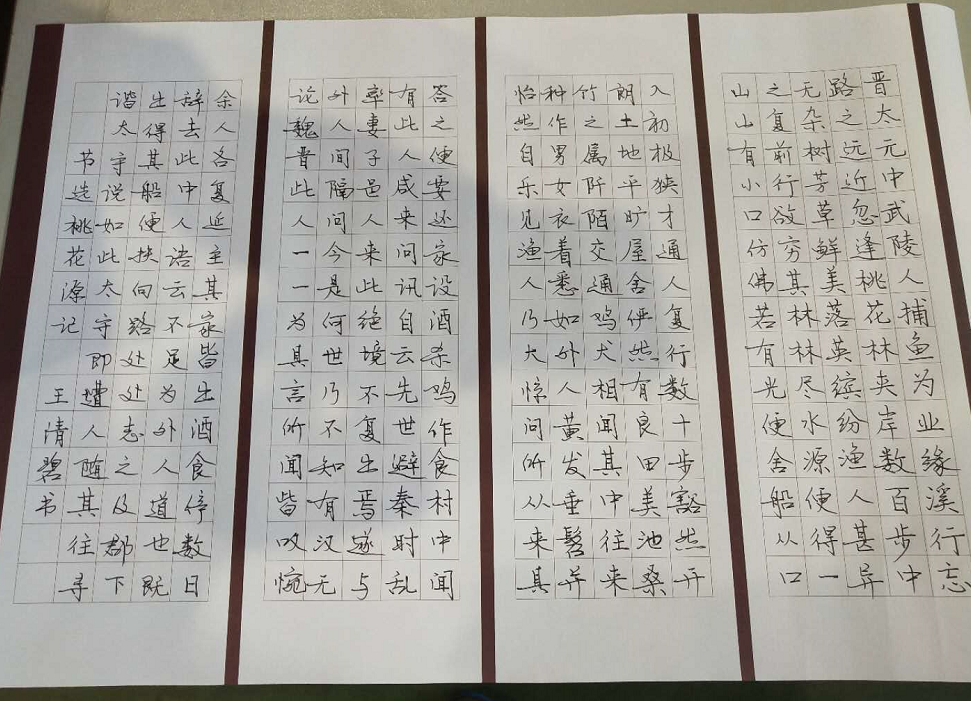 晋太元中武陵人捕鱼为业缘溪行忘
路之远近忽逢桃花林夹岸数百步中
无杂树芳草鲜美落英缤纷渔人甚异
之复前行欲穷其林林尽水源便得一
山山有小口仿佛若有光便舍船从口
入初极狭才通人复行数十步豁然开
朗土地平旷屋舍俨然有良田美池桑
竹之属阡陌交通鸡犬相闻其中往来
种作男女衣着悉如外人黄发垂髫并
怡然自乐见渔人乃大惊问所从来具
答之便要还家设酒杀鸡作食村中闻
有此人咸来问讯自云先世避秦时乱
率妻子邑人来此绝境不复出焉遂与
外人间隔问今是何世乃不知有汉无
论魏晋此人一一为具言所闻皆叹惋
余人各复延至其家皆出酒食停数日
辞去此中人语云不足为外人道也既
出得其船便扶向路处处志之及郡下
诣太守说如此太守即遣人随其往寻
节选桃花源记 王清碧书